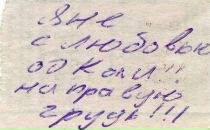 Яне
с любовью
од Коли!!
на правую
грудь!!!